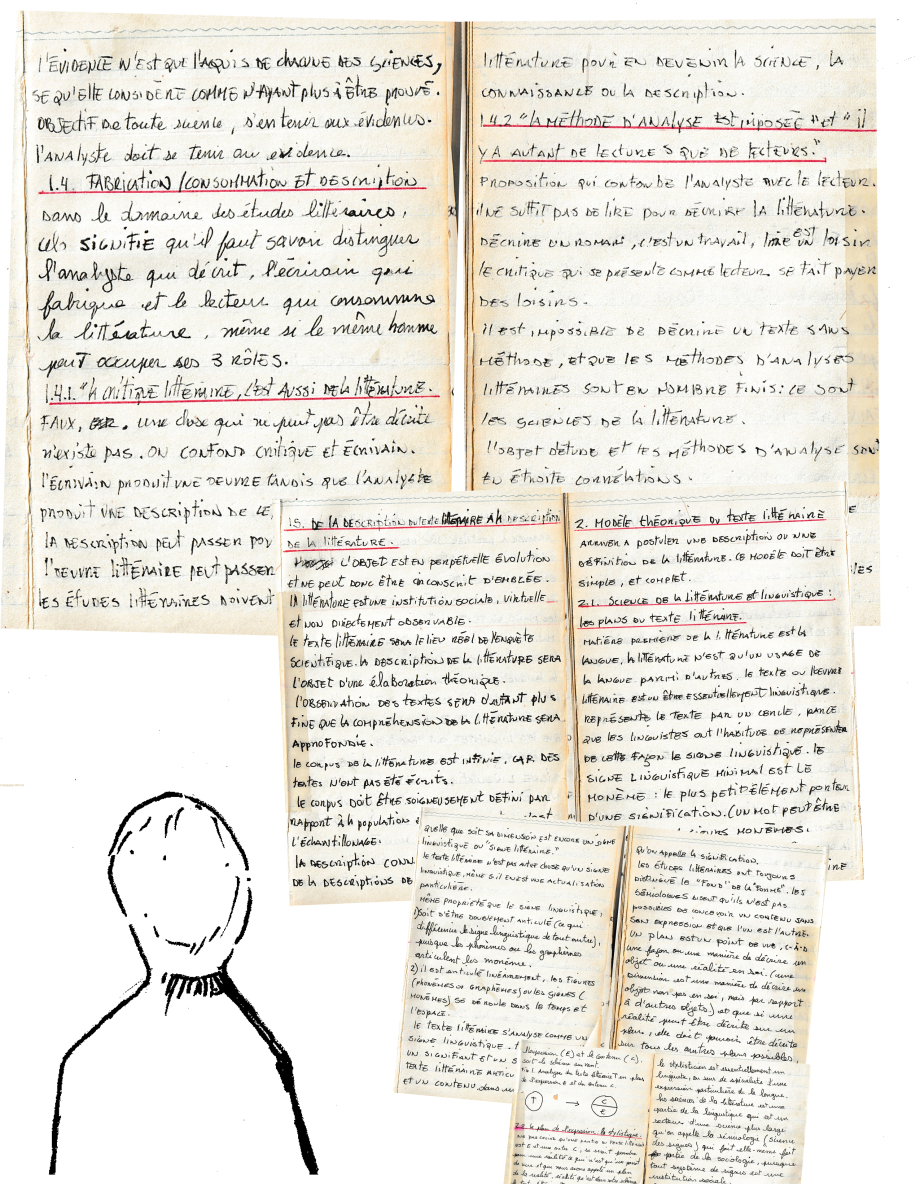 l'ÉVIDENCE N'EST QUE l'ACQUIS DE CHACUNE DES SCIENCES,
SE QU'ELLE CONSIDÈRE COMME N'AYANT PLUS À ÊTRE PROUVÉ.
OBJECTIF DE toute science, s'en tenir aux évidences.
l'ANALYSTE doit se tenir au evidence.
1.4. FABRICATION/CONSOMMATION ET DESCRIPTION
dans le domaine des études littéraires,
cela SIGNIFIE qu'il faut savoir distinguer
l'analyste qui décrit, l'écrivain qui
fabrique et le lecteur qui consomme
la littérature, même si le même homme
peut occuper ses 3 RÔLES.
1.4.1. "la CRITIQUE littÉRAIRE, C'EST AUSSI DE LA littÉRATURE.
FAUX, une chose qui ne peut pas être décrite
n'existe pas. ON CONFOND CRITIQUE ET ÉCRIVAIN.
l'ÉCRIVAIN PRODUIT UNE OEUVRE TANDIS QUE l'ANALYSTE
PRODUIT UNE DESCRIPTION DE
LA DESCRIPTION PEUT PASSER
l'OEUVRE littÉRAIRE PEUT PASSER
LES ÉTUDES littÉRAIRES DOIVENT
littÉRATURE POUR EN DEVENIR LA SCIENCE, LA
CONNAISSANCE OU LA DESCRIPTION.
1.4.2 "LA MÉTHODE D'ANALYSE EST IMPOSÉE" ET "il
Y A AUTANT DE LECTURES QUE DE LECTEURS."
PROPOSITION QUI CONFONDE l'ANALYSTE AVEC LE LECTEUR.
il NE SUFFIT PAS DE LIRE POUR DÉCRIRE LA littÉRATURE.
DÉCRIRE UN ROMAN, C'EST UN TRAVAIL, lIRE EST UN lOISIR
LE CRITIQUE QUI SE PRÉSENTE COMME LECTEUR SE FAIT PAYER
DES lOISIRS.
il EST IMPOSSIBLE DE DÉCRIRE UN TEXTE SANS
MÉTHODE, ET QUE LES MÉTHODES D'ANALYSES
littÉRAIRES SONT EN NOMBRE FINIS: CE SONT
LES SCIENCES DE LA littÉRATURE.
l'OBJET D'ÉTUDE ET lES MÉTHODES D'ANALYSE SONT
EN ÉTROITE CORRÉLATIONS.
15. DE LA DESCRIPTION DU TEXTE littÉRAIRE À LA DESCRIPTION
DE LA littÉRATURE.
l'OBJET EST EN PERPÉTUELLE ÉVOLUTION
ET NE PEUT DONC ÊTRE CIRCONSCRIT D'EMBLÉE.
LA littÉRATURE EST UNE INSTITUTION SOCIALE, VIRTUELLE
ET NON DIRECTEMENT OBSERVABLE.
LE TEXTE littÉRAIRE SERA LE LIEU RÉEL DE l'ENQUÊTE
SCIENTIFIQUE. LA DESCRIPTION DE LA littÉRATURE SERA
l'OBJET D'UNE ÉLABORATION THÉORIQUE.
l'OBSERVATION DES TEXTES SERA D'AUTANT PLUS
FINE QUE LA COMPRÉHENSION DE LA littÉRATURE SERA
APPROFONDIE.
LE CORPUS DE LA littÉRATURE EST INFINIE, CAR DES
TEXTES N'ONT PAS ÉTÉ ÉCRITS.
LE CORPUS DOIT ÊTRE SOIGNEUSEMENT DÉFINI PAR
RAPPORT À LA POPULATION
l'ÉCHANTILLONAGE.
LA DESCRIPTION CONN
DE LA DESCRIPTIONS DE
2. MODÈLE THÉORIQUE DU TEXTE littÉRAIRE
ARRIVER À POSTULER UNE DESCRIPTION OU UNE
DÉFINITION DE LA littÉRATURE. CE MODÈLE DOIT ÊTRE
SIMPLE, ET COMPLET.
2.1. SCIENCE DE LA littÉRATURE ET LINGUISTIQUE:
LES PLANS DU TEXTE littÉRAIRE.
MATIÈRE PREMIÈRE DE LA littÉRATURE EST LA
LANGUE, LA littÉRATURE N'EST QU'UN USAGE DE
LA LANGUE PARMI D'AUTRES. LE TEXTE OU l'OEUVRE
littÉRAIRE EST UN ÊTRE ESSENTIELLEMENT LINGUISTIQUE.
REPRÉSENTE LE TEXTE PAR UN CERCLE, PARCE
QUE LES LINGUISTES ONT l'HABITUDE DE REPRÉSENTER
DE CETTE FAÇON LE SIGNE LINGUISTIQUE. LE
SIGNE LINGUISTIQUE MINIMAL EST LE
MONÈME: LE PLUS PETIT ÉLÉMENT PORTEUR
D'UNE SIGNIFICATION. (UN MOT PEUT ÊTRE
MONÈMES.
QUELLE QUE SOIT SA DIMENSION EST ENCORE UN SIGNE
LINGUISTIQUE OU "SIGNE littÉRAIRE."
LE TEXTE littÉRAIRE N'EST PAS AUTRE CHOSE QU'UN SIGNE
LINGUISTIQUE, MÊME S'IL EN EST UNE ACTUALISATION
PARTICULIÈRE.
MÊME PROPRIÉTÉ QUE LE SIGNE LINGUISTIQUE,
1) SOIT D'ÊTRE DOUBLEMENT ARTICULÉ (ce qui
différencie le signe linguistique de tout autre),
puisque les phonèmes ou les graphèmes
articulent les monème.
2) il EST ARTICULÉ LINÉAIREMENT, LES FIGURES
(PHONÈMES OU GRAPHÈMES) OU LES SIGNES (
MONÈMES) SE DÉROULE DANS LE TEMPS ET
l'ESPACE.
LE TEXTE littÉRAIRE S'ANALYSE COMME UN
SIGNE LINGUISTIQUE.
UN SIGNIFIANT ET UN S
TEXTE littÉRAIRE ARTICU
ET UN CONTENU.
QU'ON APPELLE LA SIGNIFICATION.
LES ÉTUDES littÉRAIRES ONT TOUJOURS
DISTINGUÉ LE "FOND" DE LA "FORME". LES
SÉMIOLOGUES DISENT QU'ILS N'EST PAS
POSSIBLES DE CONCEVOIR UN CONTENU SANS
SON EXPRESSION ET QUE l'UN EST l'AUTRE.
UN PLAN EST UN POINT DE VUE, C-À-D
une façon ou une manière de décrire un
objet ou une réalité en soi. (une
dimension est une manière de décrire un
objet non pas en soi, mais par rapport
à d'autres objets) et que si une
réalité peut être décrite sur un
plan, elle doit pouvoir être décrite
sur tous les autres plans possibles.
l'expression (E) et le contenu (C).
soit le schéma suivant.
T → C
E
2.2 le plan de l'expression: la stylistique.
la stylistique est essentiellement une
linguiste, en sus de spécialiste d'une
expression particulière de la langue.
les sciences de la littérature est une
partie de la linguistique qui est un
secteur d'une science plus large
qu'on appelle la sémiologie (science
des signes) qui fait elle-même fait
partie de la sociologie, puisque
tout système de signes est une
institution sociale.